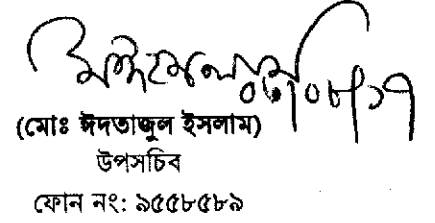 ০৮/০৮/১৭
(মোঃ ঈদতাজুল ইসলাম)
উপসচিব
ফোন নং: ৯৫৫৮৫৮৯